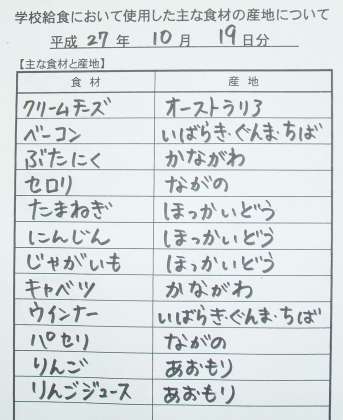 学校給食において使用した主な食材の産地について
平成 27 年 10 月 19 日分
【主な食材と産地】
食材 産地
クリームチーズ オーストラリア
ベーコン いばらき・ぐんま・ちば
ぶたにく かながわ
セロリ ながの
たまねぎ ほっかいどう
にんじん ほっかいどう
じゃがいも ほっかいどう
キャベツ かながわ
ウインナー いばらき・ぐんま・ちば
パセリ ながの
りんご あおもり
りんごジュース あおもり